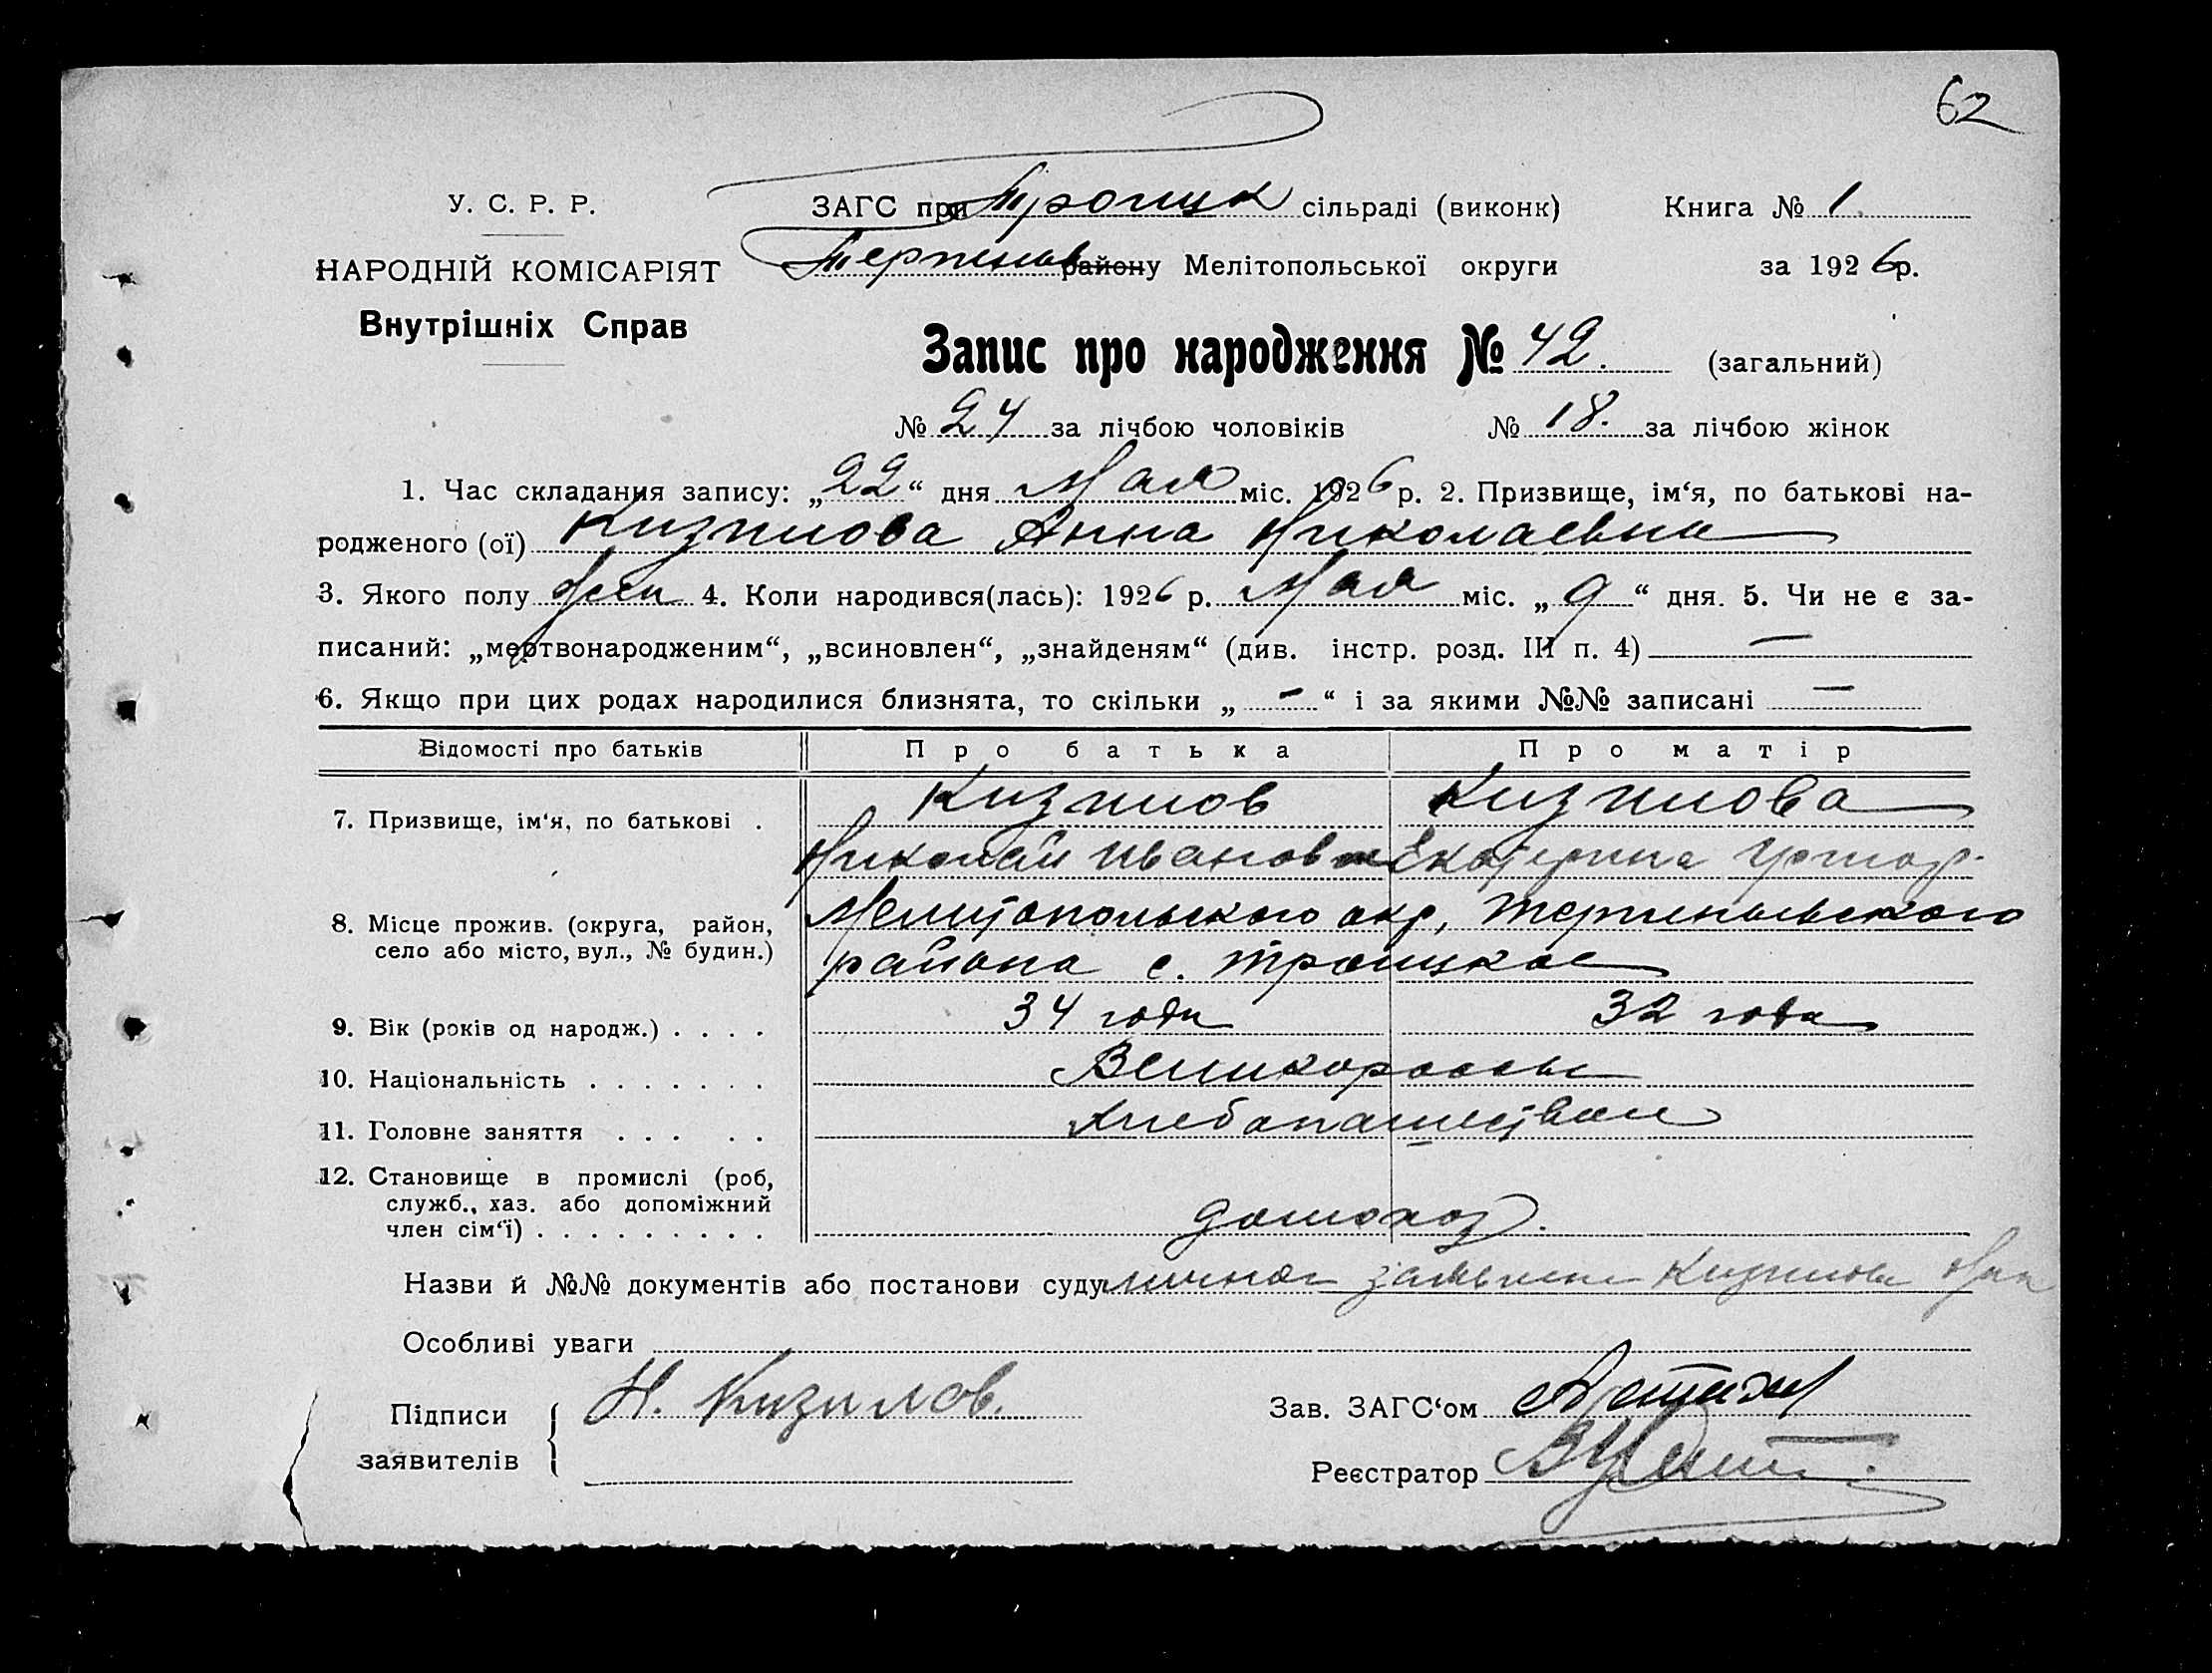 62
У. С. Р. Р.
НАРОДНІЙ КОМІСАРІЯТ
Внутрішніх Справ
ЗАГС при Троицк сільраді (виконк)
Книга № 1.
Терпеньев району Мелітопольської округи
за 1926 р.
Запис про народження № 42. (загальний)
№ 24 за лічбою чоловіків № 18. за лічбою жінок
1. Час складання запису: „22“ дня Мая міс. 1926 р. 2. Призвище, ім‘я, по батькові на-
родженого (ої) Кизилова Анна Николаевна
3. Якого полу жен 4. Коли народився(лась): 1926 р. Мая міс. „9“ дня. 5. Чи не є за-
писаний: „мертвонародженим“, „всиновлен“, „знайденям“ (див. інстр. розд. III п. 4) —
6. Якщо при цих родах народилися близнята, то скільки „-“ і за якими №№ записані —
Відомості про батьків Про батька Про матір
7. Призвище, ім‘я, по батькові . Кизилов Кизилова
Николай Иванов Екатерина
8. Місце прожив. (округа, район, село або місто, вул., № будин.) Мелитопольского окр, Терпеньевского
района с. Троицкое
9. Вік (років од народж.) . . . . 34 года 32 года
10. Національність . . . . . . . Великороссы
11. Головне заняття . . . . . Хлебопашеством
12. Становище в промислі (роб,
служб., хаз. або допоміжний
член сім‘ї) . . . . . . . . . домохоз.
Назви й №№ документів або постанови суду личное заявление Кизилова Ник
Особливі уваги
Підписи
заявителів
Н. Кизилов.
Зав. ЗАГС‘ом
Реєстратор